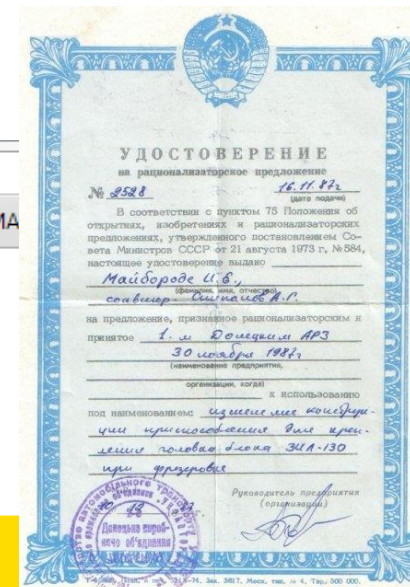 МА
УДОСТОВЕРЕНИЕ
на рационализаторское предложение
№ 2528 16.11.87г
(дата подачи)
В соответствии с пунктом 75 Положения об
открытиях, изобретениях и рационализаторских
предложениях, утвержденного постановлением Со-
вета Министров СССР от 21 августа 1973 г. № 584,
настоящее удостоверение выдано
Майбороде И.В.,
(фамилия, имя, отчество)
соавтор А.Г.
на предложение, признанное рационализаторским и
принятое 1-м Донецким АРЗ
30 ноября 1987г
(наименование предприятия,
организации, когда)
к использованию
под наименованием: изменение конструк-
ции приспособления для креп-
ления головки блока ЗИЛ-130
при фрезеровке
Руководитель предприятия
(организации)
автомобільного
Донецьке вироб-
ниче об'єднання